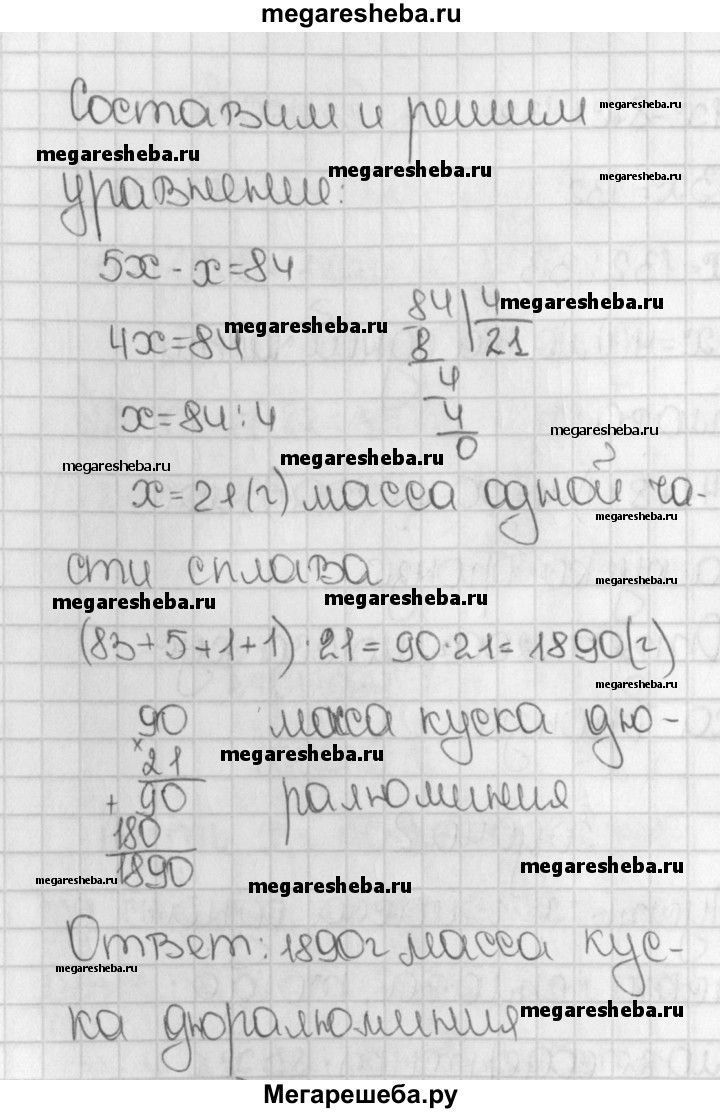 megaresheba.ru
Составим и решим
megaresheba.ru
megaresheba.ru
megaresheba.ru
уравнение:
megaresheba.ru
5x - x = 84
84 | 4
megaresheba.ru
4x = 84
megaresheba.ru
8 | 21
4
x = 84 : 4
4
0
megaresheba.ru
megaresheba.ru
megaresheba.ru
x = 21 (г) масса одной ча-
megaresheba.ru
сти сплава
megaresheba.ru
megaresheba.ru
megaresheba.ru
(83 + 5 + 1 + 1) · 21 = 90 · 21 = 1890 (г)
megaresheba.ru
90 масса куска дю-
× 21
megaresheba.ru
+ 90 ралюминия
180
1890
megaresheba.ru
megaresheba.ru
megaresheba.ru
Ответ: 1890 г масса кус-
megaresheba.ru
ка дюралюминия
megaresheba.ru
Мегарешеба.ру